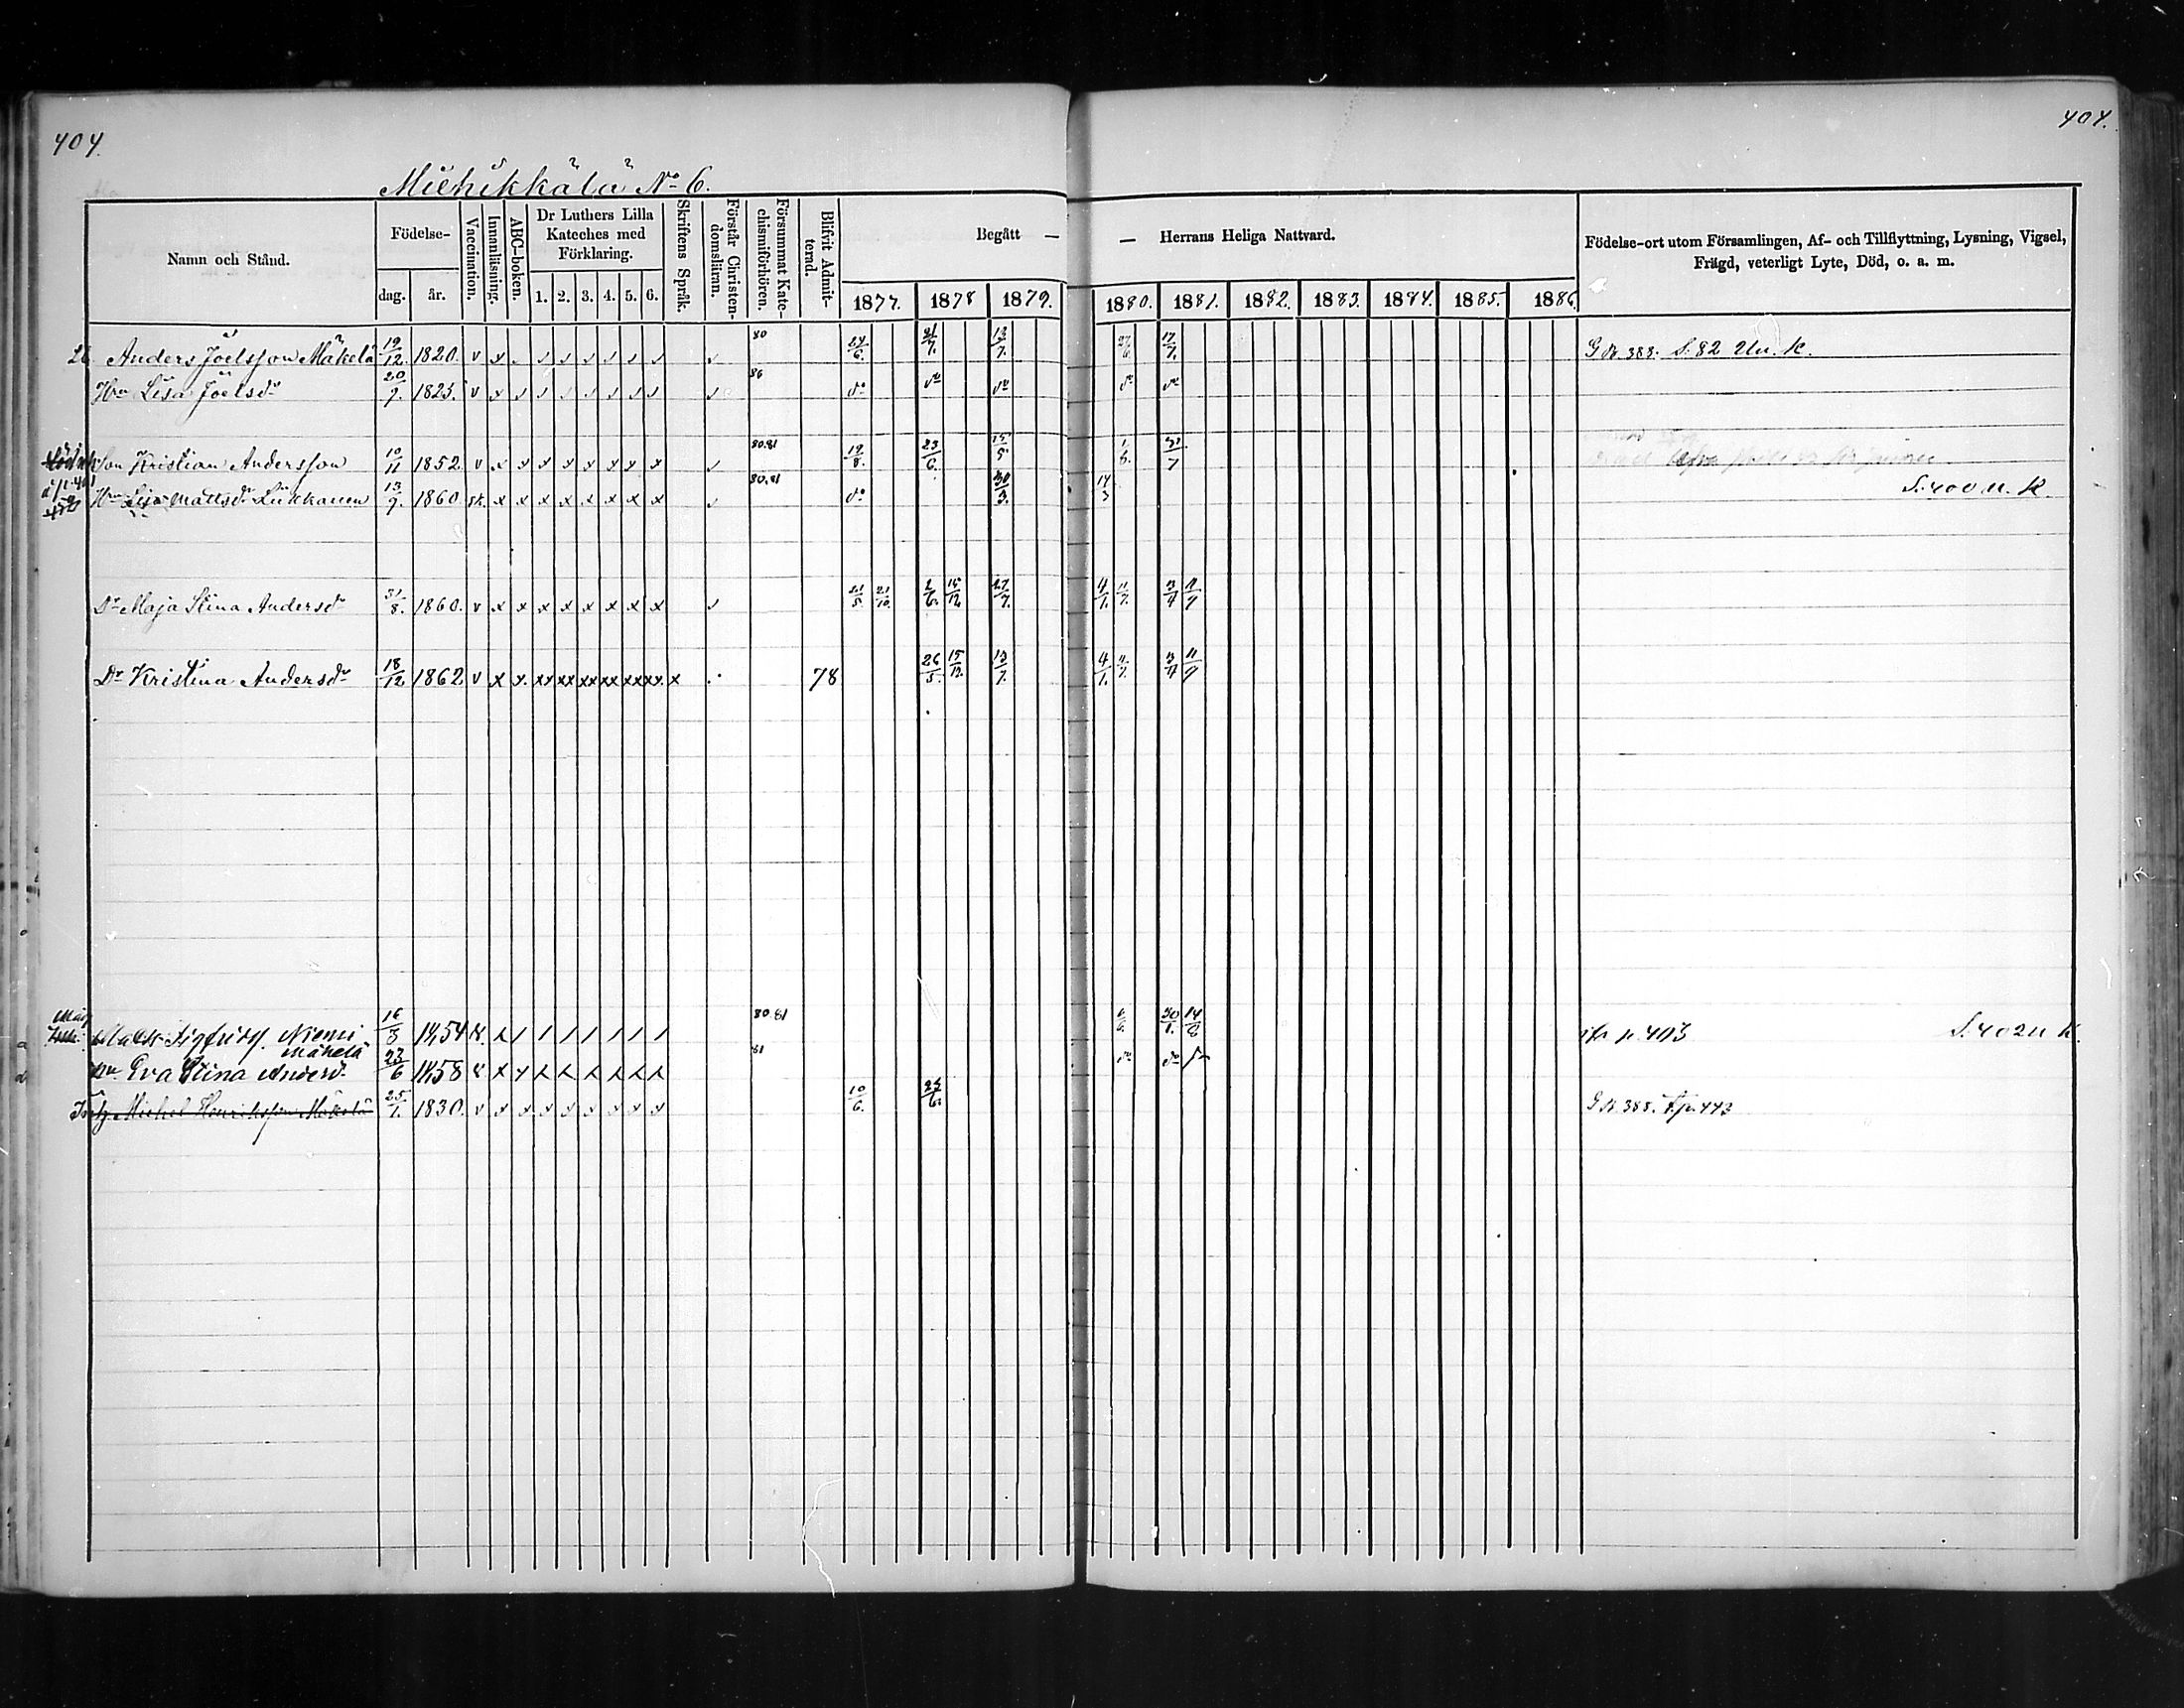 404.
404.
Miehikkälä No 6.
Namn och Stånd.
Födelse-
dag.
år.
Vaccination.
Innanläsning.
ABC-boken.
Dr Luthers Lilla Kateches med Förklaring.
1. 2. 3. 4. 5. 6.
Skriftens Språk.
Förstår Christendomsläran.
Försummat Katechismiförhören.
Blifvit Admitterad.
Begått — — Herrans Heliga Nattvard.
1877. 1878 1879. 1880. 1881. 1882. 1883. 1884. 1885. 1886.
Födelse-ort utom Församlingen, Af- och Tillflyttning, Lysning, Vigsel, Frägd, veterligt Lyte, Död, o. a. m.
26. Anders Joelsson Mäkelä 19/12. 1820. v x 80 24/6. 21/7. 13/7. 27/6. 17/7. S. 82 Uu. K.
Hru Lisa Joelsdr 20/9. 1823. v x 86 do do do do do
Son Kristian Andersson 10/11 1852 v x x x x x x x x 80.81 19/8. 23/6. 15/5.
Hru Mattsdr Liikkanen 13/9. 1860 x x x x x x x x 80.81 do 30/3. 14/3 S. 400 u. K.
Dr Maja Stina Andersdr 31/8. 1860. v x x x x x x x x 21/5. 21/10. 2/6. 15/12. 27/7. 4/1. 11/7. 3/4 11/9
Dr Kristina Andersdr 18/12 1862 v x x. xx xx xx xx xx xx. x 78 26/5. 15/12. 13/7. 4/1. 11/7. 3/4 11/9
Mats Sigfridss. Niemi 16/3 1854 80.81 6/6. 30/1. 14/8 p. 403 S. 402 u K.
Mäkelä
hu. Eva Stina Andersd. 23/6 1858 81 do do
Michel Henriksson Mäkelä 25/1. 1830. v x x x x x x x x 10/6. 24/6. 388. 443